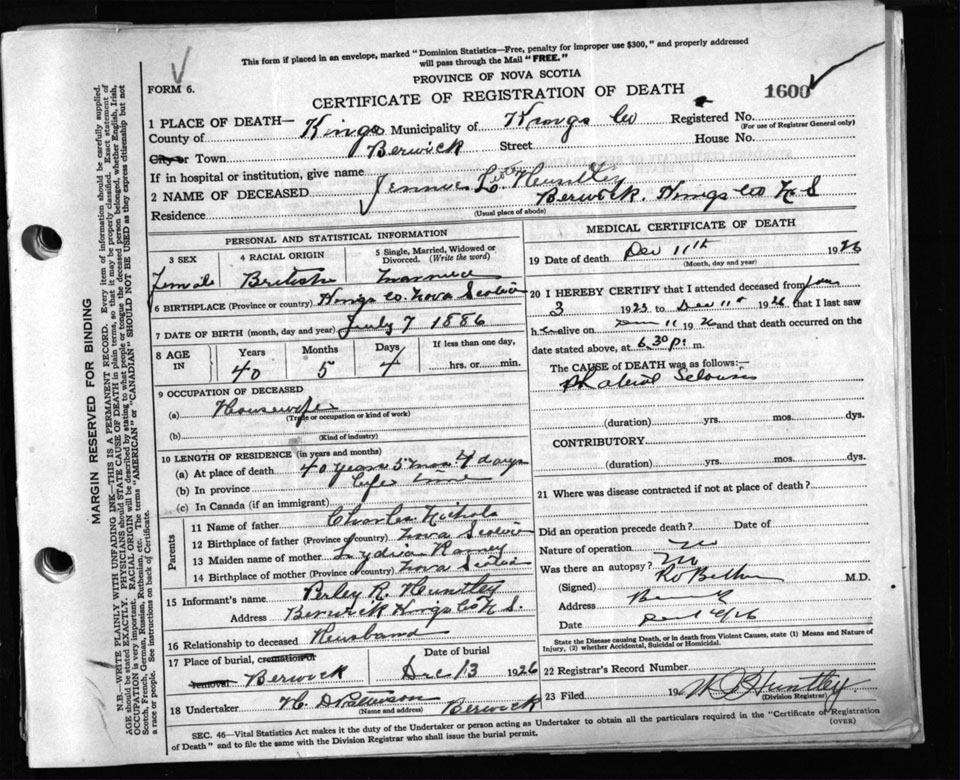 This form if placed in an envelope, marked "Dominion Statistics—Free, penalty for improper use $300," and properly addressed
will pass through the Mail "FREE."
PROVINCE OF NOVA SCOTIA
FORM 6.
CERTIFICATE OF REGISTRATION OF DEATH
1600
1 PLACE OF DEATH—
County of Kings Municipality of Kings Co Registered No.
(For use of Registrar General only)
City or Town Berwick Street House No.
If in hospital or institution, give name
2 NAME OF DECEASED Jennie L. Huntley
Residence Berwick. Kings Co N S
(Usual place of abode)
PERSONAL AND STATISTICAL INFORMATION
3 SEX
Female
4 RACIAL ORIGIN
British
5 Single, Married, Widowed or
Divorced. (Write the word)
Married
6 BIRTHPLACE (Province or country) Kings Co. Nova Scotia
7 DATE OF BIRTH (month, day and year) July 7 1886
8 AGE
IN
Years
40
Months
5
Days
4
If less than one day,
hrs. or min.
9 OCCUPATION OF DECEASED
(a) Housewife
(Trade or occupation or kind of work)
(b)
(Kind of industry)
10 LENGTH OF RESIDENCE (in years and months)
(a) At place of death 40 years 5 mos. 4 days
(b) In province Life time
(c) In Canada (if an immigrant)
Parents
11 Name of father Charles Nichols
12 Birthplace of father (Province or country) Nova Scotia
13 Maiden name of mother Lydia Ramey
14 Birthplace of mother (Province or country) Nova Scotia
15 Informant's name R. Huntley
Address Berwick Kings Co N S.
16 Relationship to deceased Husband
17 Place of burial, cremation or
removal Berwick
Date of burial
Dec 13 1926
18 Undertaker
(Name and address) Berwick
MEDICAL CERTIFICATE OF DEATH
19 Date of death Dec 11th 1926
(Month, day and year)
20 I HEREBY CERTIFY that I attended deceased from
3 1923 to Dec 11 1926 that I last saw
h alive on 11 1926 and that death occurred on
date stated above, at 6.30 p. m.
The CAUSE of DEATH was as follows:—
(duration) yrs. mos. dys.
CONTRIBUTORY
(duration) yrs. mos. dys.
21 Where was disease contracted if not at place of death?
Did an operation precede death? Date of
Nature of operation no
Was there an autopsy? no
(Signed) M.D.
Address
Date
State the Disease causing Death, or in death from Violent Causes, state (1) Means and Nature of
Injury, (2) whether Accidental, Suicidal or Homicidal.
22 Registrar's Record Number
23 Filed 19 Huntley
(Division Registrar)
SEC. 46—Vital Statistics Act makes it the duty of the Undertaker or person acting as Undertaker to obtain all the particulars required in the "Certificate of Registration
of Death" and to file the same with the Division Registrar who shall issue the burial permit.
(OVER)
MARGIN RESERVED FOR BINDING
N.B.—WRITE PLAINLY WITH UNFADING INK—THIS IS A PERMANENT RECORD. Every item of information should be carefully supplied.
AGE should be stated EXACTLY. PHYSICIANS should STATE CAUSE OF DEATH in plain terms, so that it may be properly classified. Exact statement of
OCCUPATION is very important. RACIAL ORIGIN will be described by stating to what people or tongue the deceased person belonged, whether English, Irish,
Scotch, French, German, Russian, Ruthenian, etc. The terms "AMERICAN" or "CANADIAN" SHOULD NOT BE USED as they express citizenship but not
a race or people. See instructions on back of Certificate.